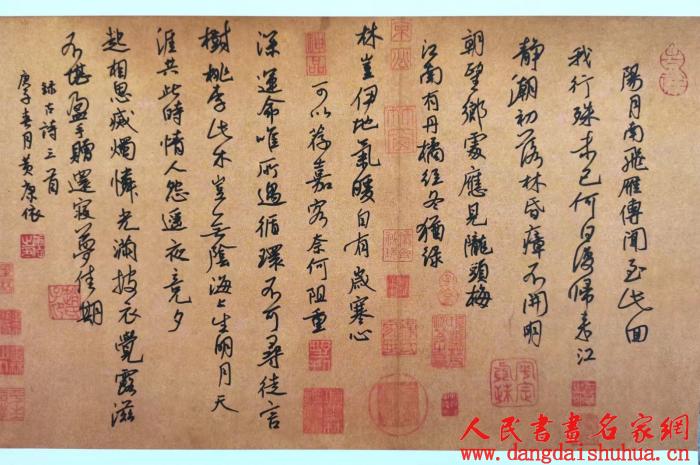 陽月南飛雁傳聞至此回
我行殊未已何日復歸來江
靜潮初落林昏瘴不開明
朝望鄉處應見隴頭梅
江南有丹橘經冬猶綠
林豈伊地氣暖自有歲寒心
可以荐嘉客奈何阻重
深運命唯所遇循環不可尋徒言
樹桃李此木豈無陰海上生明月天
涯共此時情人怨遥夜竟夕
起相思滅燭憐光滿披衣覺露滋
不堪盈手贈還寝夢佳期
錄古詩三首
庚子春月黄康依
人民書畫名家網
www.dangdaishuhua.com